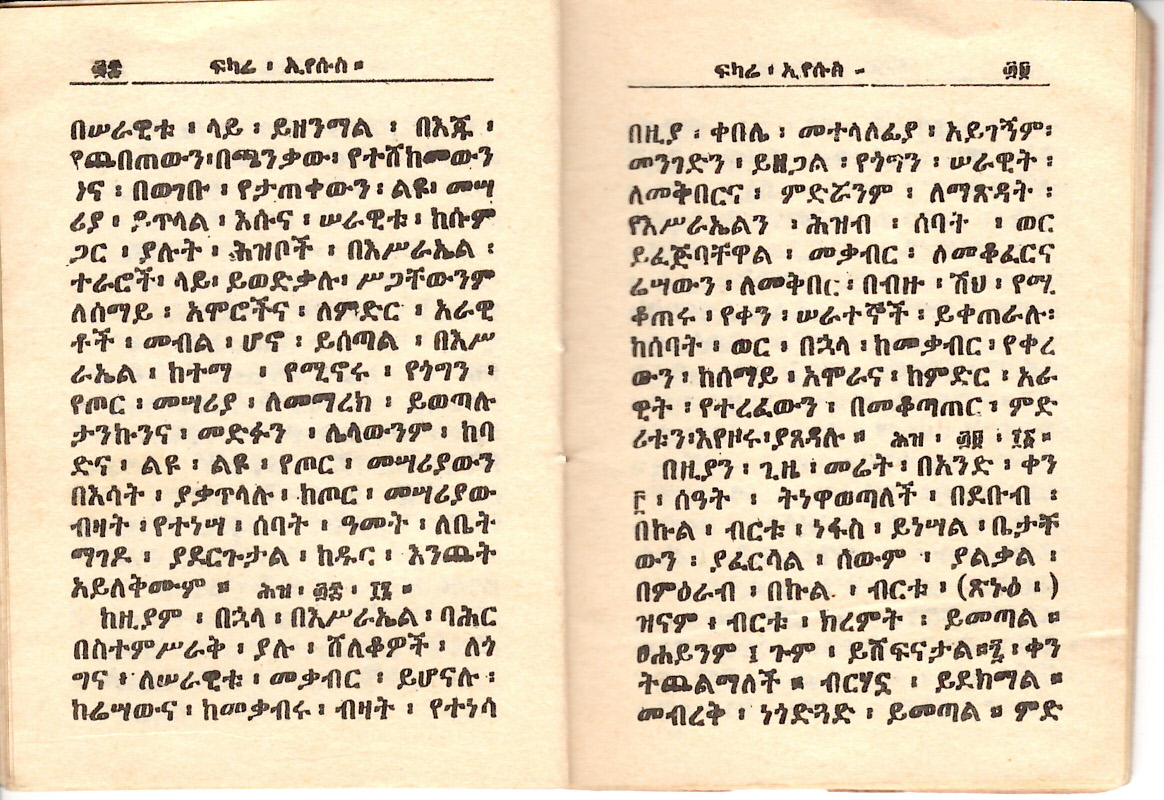 ፴፰ ፍካሬ ፡ ኢየሱስ ።
በሠራዊቱ ፡ ላይ ፡ ይዘንማል ፡ በእጁ ፡
የጨበጠውን፡በጫንቃው፡ የተሸከመውን
ነና ፡ በወገቡ ፡ የታጠቀውን፡ ልዩ፡ መሣ
ሪያ ፡ ይጥላል ፡ እሱና ፡ ሠራዊቱ ፡ ከሱም
ጋር ፡ ያሉት ፡ ሕዝቦች ፡ በእሥራኤል ፡
ተራሮች፡ ላይ፡ ይወድቃሉ፡ ሥጋቸውንም
ለሰማይ ፡ አሞሮችና ፡ ለምድር ፡ አራዊ
ቶች ፡ መብል ፡ ሆኖ ፡ ይሰጣል ፡ በእሥ
ራኤል ፡ ከተማ ፡ የሚኖሩ ፡ የጎግን ፡
የጦር ፡ መሣሪያ ፡ ለመማረክ ፡ ይወጣሉ
ታንኩንና ፡ መድፉን ፡ ሌላውንም ፡ ከባ
ድና ፡ ልዩ ፡ ልዩ ፡ የጦር ፡ መሣሪያውን
በእሳት ፡ ያቃጥላሉ ፡ ከጦር ፡ መሣሪያው
ብዛት ፡ የተነሣ ፡ ሰባት ፡ ዓመት ፡ ለቤት
ማገዶ ፡ ያደርጉታል ፡ ከዱር ፡ እንጨት
አይለቅሙም ። ሕዝ ፡ ፴፰ ፡
ከዚያም ፡ በኋላ ፡ በእሥራኤል ፡ ባሕር
በስተምሥራቅ ፡ ያሉ ፡ ሸለቆዎች ፡ ለጎ
ግና ፡ ለሠራዊቱ ፡ መቃብር ፡ ይሆናሉ ፡
ከሬሣውና ፡ ከመቃብሩ ፡ ብዛት ፡ የተነሳ
ፍካሬ ፡ ኢየሱስ ። ፴፱
በዚያ ፡ ቀበሌ ፡ መተላለፊያ ፡ አይገኝም፡
መንገድን ፡ ይዘጋል ፡ የጎግን ፡ ሠራዊት ፡
ለመቅበርና ፡ ምድሯንም ፡ ለማጽዳት ፡
የእሥራኤልን ፡ ሕዝብ ፡ ሰባት ፡ ወር
ይፈጅባቸዋል ፡ መቃብር ፡ ለመቆፈርና
ሬሣውን ፡ ለመቅበር ፡ በብዙ ፡ ሽህ ፡ የሚ
ቆጠሩ ፡ የቀን ፡ ሠራተኞች ፡ ይቀጠራሉ፡
ከሰባት ፡ ወር ፡ በኋላ ፡ ከመቃብር ፡ የቀረ
ውን ፡ ከሰማይ ፡ አሞራና ፡ ከምድር ፡ አራ
ዊት ፡ የተረፈውን ፡ በመቆጣጠር ፡ ምድ
ሪቱን፡እየዞሩ፡ያጸዳሉ ። ሕዝ ፡ ፴፱ ፡ ፲፭ ።
በዚያን ፡ ጊዜ ፡ መሬት ፡ በአንድ ፡ ቀን
፫ ፡ ሰዓት ፡ ትነዋወጣለች ፡ በደቡብ ፡
በኩል ፡ ብርቱ ፡ ነፋስ ፡ ይነሣል ፡ ቤታቸ
ውን ፡ ያፈርሳል ፡ ሰውም ፡ ያልቃል ፡
በምዕራብ ፡ በኩል ፡ ብርቱ ፡ (ጽኑዕ ፡ )
ዝናም ፡ ብርቱ ፡ ክረምት ፡ ይመጣል ።
ፀሐይንም ፤ ጉም ፡ ይሸፍናታል።፯ ፡ ቀን
ትጨልማለች ። ብርሃኗ ፡ ይደክማል ።
መብረቅ ፡ ነጎድጓድ ፡ ይመጣል ። ምድ